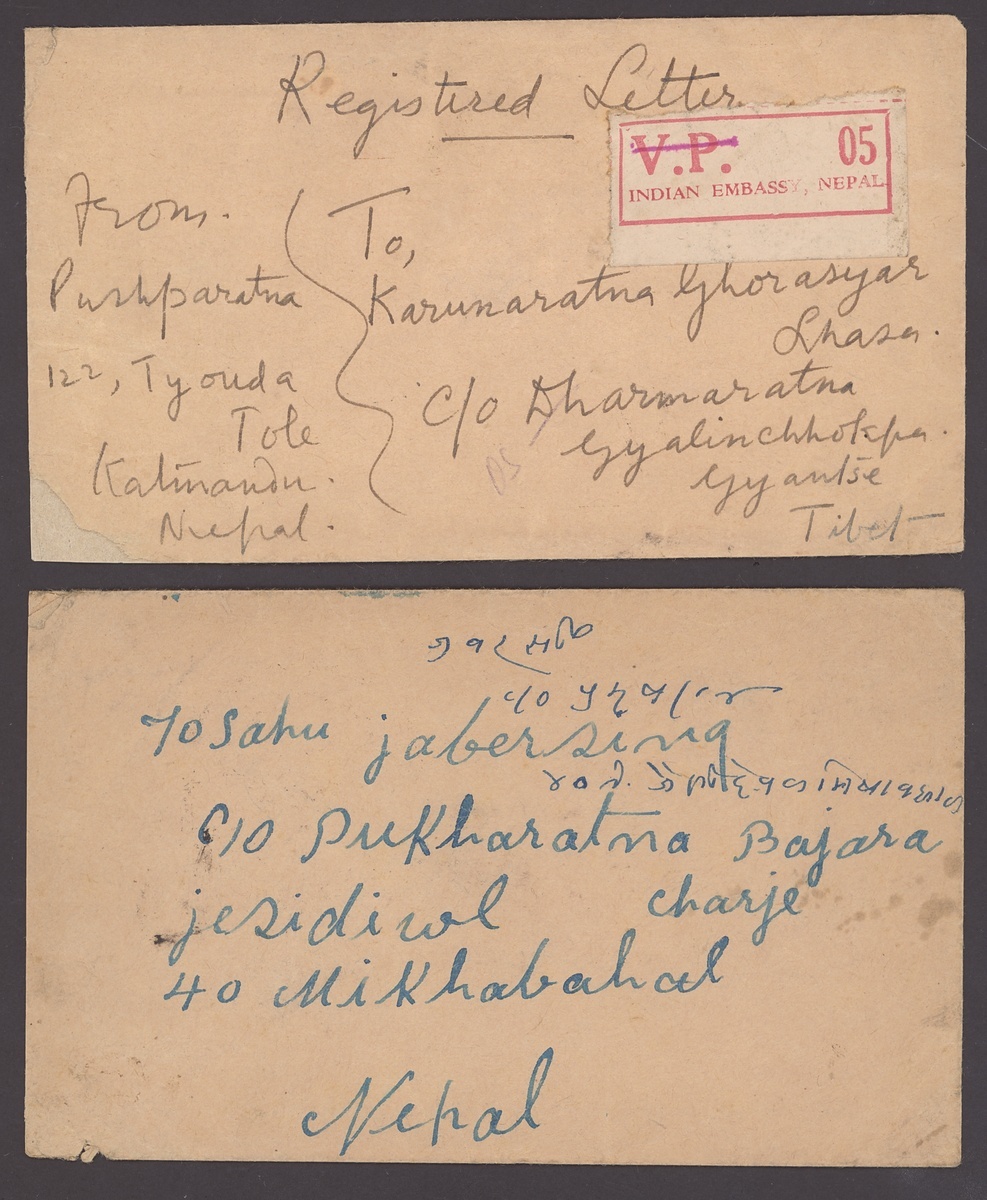 Registered Letter
V.P. 05
INDIAN EMBASSY, NEPAL
From.
Pushparatna
122, Tyouda
Tole
Katmandu.
Nepal.
To,
Karunaratna Ghorasyar
Lhasa.
C/o Dharmaratna
Gyalinchhokpa.
Gyantse
Tibet
To Sahu jabersing
C/O Pukharatna Bajara
jesidiwl charje
40 Mikhabahal
Nepal